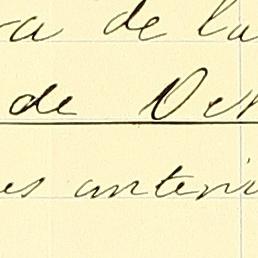 ra de la
de Oct
es anteri